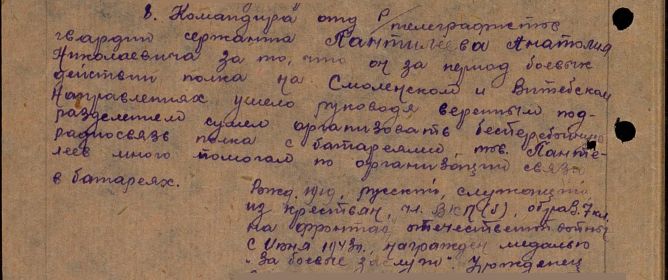 8. Командира отд р/телеграфистов
гвардии сержанта Пантилеева Анатолия
Николаевича за то, что он за период боевых
действий полка на Смоленском и Витебском
направлениях умело руководя вверенным под-
разделением сумел организовать бесперебойную
радиосвязь полка с батареями, тов. Панте-
леев много помогал по организации связи
в батареях.
Рожд. 1919, русский, служащий
из крестьян, чл. ВКП(б), образ. 7 кл.
на фронтах отечественной войны
с Июня 1943г, награжден медалью
"За боевые заслуги". Урожденец